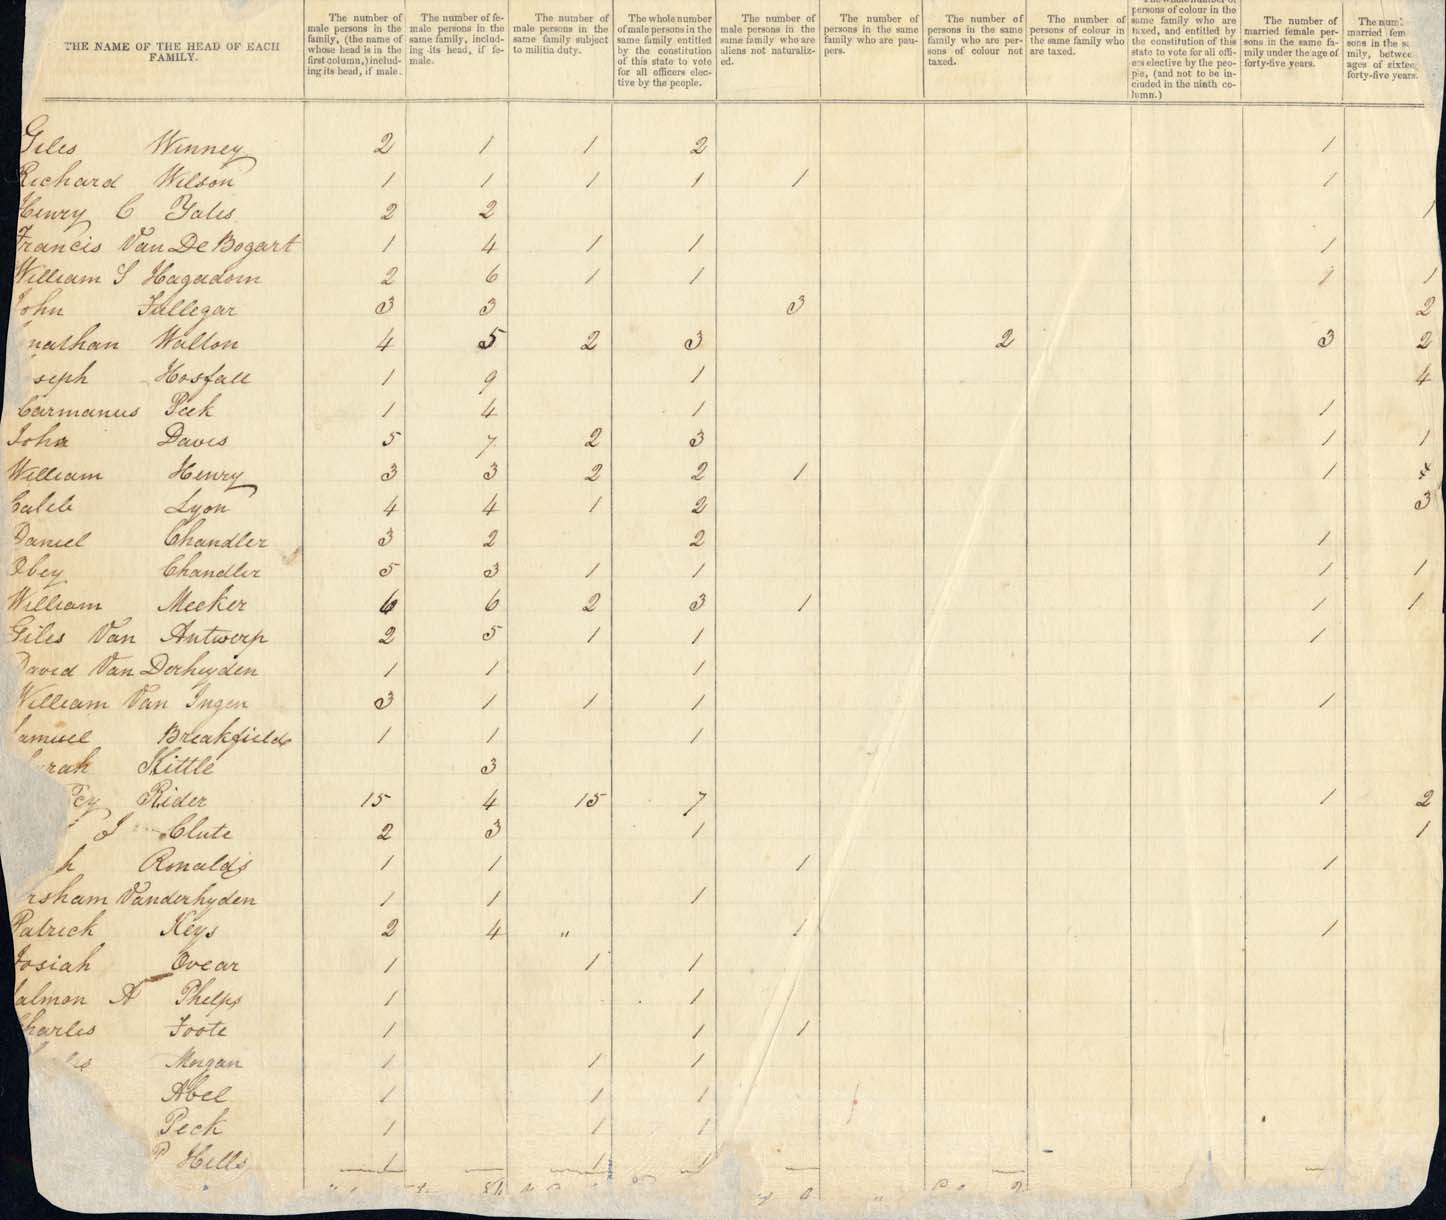 THE NAME OF THE HEAD OF EACH FAMILY.
The number of male persons in the family, (the name of whose head is in the first column,) including its head, if male.
The number of female persons in the same family, including its head, if female.
The number of male persons in the same family subject to militia duty.
The whole number of male persons in the same family entitled by the constitution of this state to vote for all officers elective by the people.
The number of male persons in the same family who are aliens not naturalized.
The number of persons in the same family who are paupers.
The number of persons in the same family who are persons of colour not taxed.
The number of persons of colour in the same family who are taxed.
The whole number of persons of colour in the same family who are taxed, and entitled by the constitution of this state to vote for all officers elective by the people, (and not to be included in the ninth column.)
The number of married female persons in the same family under the age of forty-five years.
married fem sons in the mily, betwee ages of sixtee forty-five years.
Giles Winney 2 1 1 2 1
Richard Wilson 1 1 1 1 1 1
Henry C Yates 2 2 1
Francis Van De Bogart 1 4 1 1 1
William S Hagadorn 2 6 1 1 1 1
John Fullegar 3 3 3 2
nathan Walton 4 5 2 3 2 3 2
seph Hosfall 1 9 1 4
Carmanus Peek 1 4 1 1
John Davis 5 7 2 3 1 1
William Henry 3 3 2 2 1 1 4
Caleb Lyon 4 4 1 2 3
Daniel Chandler 3 2 2 1
Obey Chandler 5 3 1 1 1 1
William Meeker 6 6 2 3 1 1 1
Giles Van Antwerp 2 5 1 1 1
David Van Derheyden 1 1 1
William Van Ingen 3 1 1 1 1
Samuel Breakfield 1 1 1
rah Kittle 3
Rider 15 4 15 7 1 2
J Clute 2 3 1 1
h Ronalds 1 1 1 1
rsham Vanderhyden 1 1 1
Patrick Keys 2 4 " 1 1
Josiah Ovear 1 1 1
Salmon A Phelps 1 1
Charles Foote 1 1 1
Morgan 1 1 1
Abel 1 1 1
Peck 1 1 1
P Hills 1 1 1